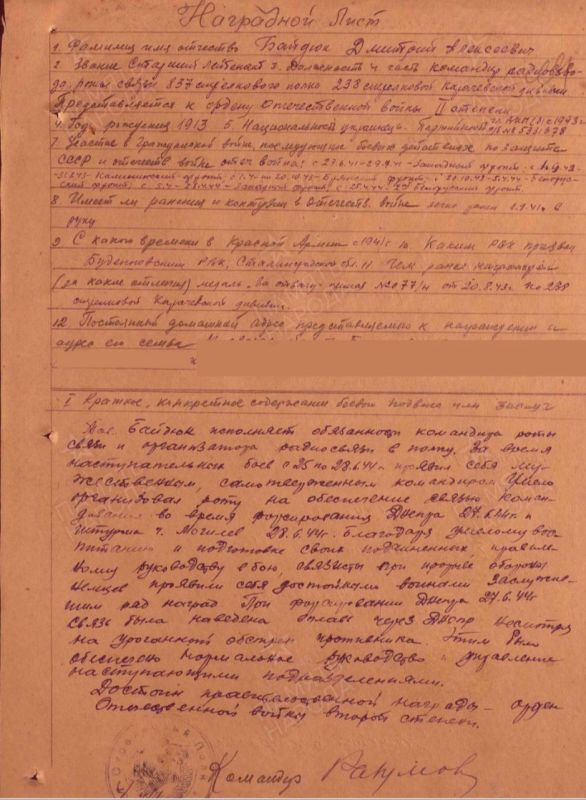 Наградной Лист
1. Фамилия имя отчество Байдюк Дмитрий Алексеевич
2. Звание Старший лейтенант 3. Должность и часть командир радиовзво-
да роты связи 837 стрелкового полка 238 стрелковой Карачевской дивизии
Представляется к ордену Отечественной войны II степени
4. Год рождения 1913 5. Национальность украинец. Партийность
7. Участие в гражданской войне, последующие боевые действиях по защите
СССР и отечеств. войне отеч. война: с 27.6.41-29.9.41 - Западный фронт
Калининский фронт, с 20.10.43-5.4.44 - Белорус-
ский фронт, с 5.4-25.4.44 - Западный фронт, с 25.4.44 2й Белорусский фронт.
8. Имеет ли ранения и контузии в отечеств. войне легко ранен 1.9.41 в
руку
9. С какого времени в Красной Армии с 1941 г. 10. Каким РВК призван
Буденновским РВК, Сталинградской обл. 11 Чем ранее награжден
(за какие отличия) медаль "За отвагу" приказ №077/н от 20.8.43г по 238
стрелковой Карачевской дивизии.
12. Постоянный домашний адрес представляемого к награждению и
адрес его семьи
I Краткое, конкретное содержание боевого подвига или заслуг
Тов. Байдюк исполняет обязанности командира роты
связи и организатора радиосвязи в полку. За время
наступательных боев с 25 по 28.6.44г проявил себя му-
жественным, самоотверженным командиром. Умело
организовал роту на обеспечение связью коман-
дования во время форсирования Днепра 27.6.44г и
штурма г. Могилев 28.6.44г. Благодаря умелому вос-
питанию и подготовке своих подчиненных, правиль-
ному руководству в бою, связисты при прорыве обороны
немцев проявили себя достойными воинами заслужив-
шим ряд наград. При форсировании Днепра 27.6.44г
связь была наведена через Днепр несмотря
на ураганный обстрел противника. Этим было
обеспечено нормальное руководство и управление
наступающими подразделениями.
Достоин правительственной награды - орден
Отечественной войны второй степени.
Командир